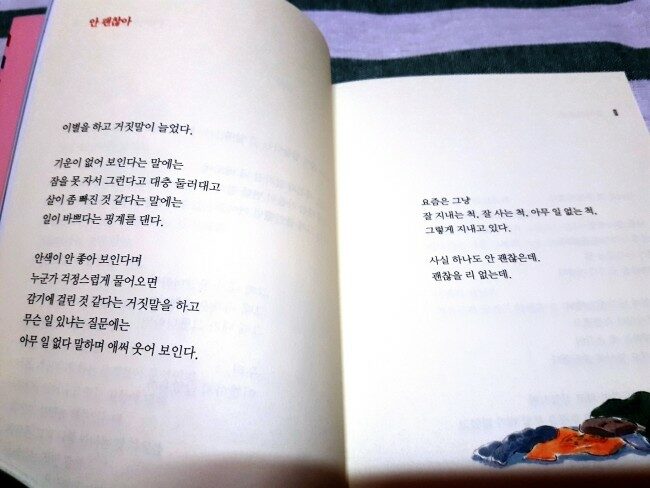 안 괜찮아
이별을 하고 거짓말이 늘었다.
기운이 없어 보인다는 말에는
잠을 못 자서 그런다고 대충 둘러대고
살이 좀 빠진 것 같다는 말에는
일이 바쁘다는 핑계를 댄다.
안색이 안 좋아 보인다며
누군가 걱정스럽게 물어오면
감기에 걸린 것 같다는 거짓말을 하고
무슨 일 있냐는 질문에는
아무 일 없다 말하며 애써 웃어 보인다.
요즘은 그냥
잘 지내는 척, 잘 사는 척, 아무 일 없는 척,
그렇게 지내고 있다.
사실 하나도 안 괜찮은데.
괜찮을 리 없는데.